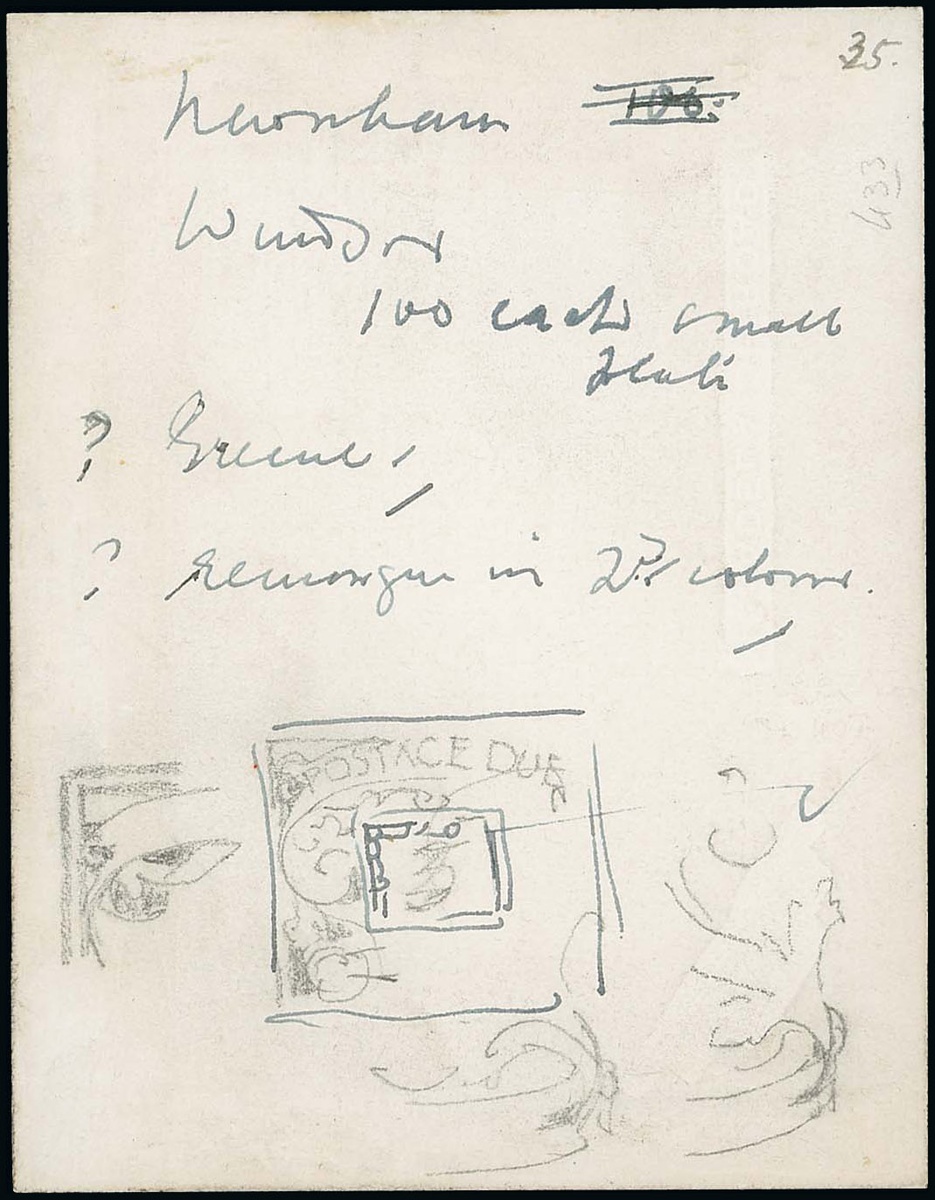 35.
Newnham 106.
433
Windsor
100 each small
? Greene
? Remarque in 2nd colour.
POSTAGE DUE